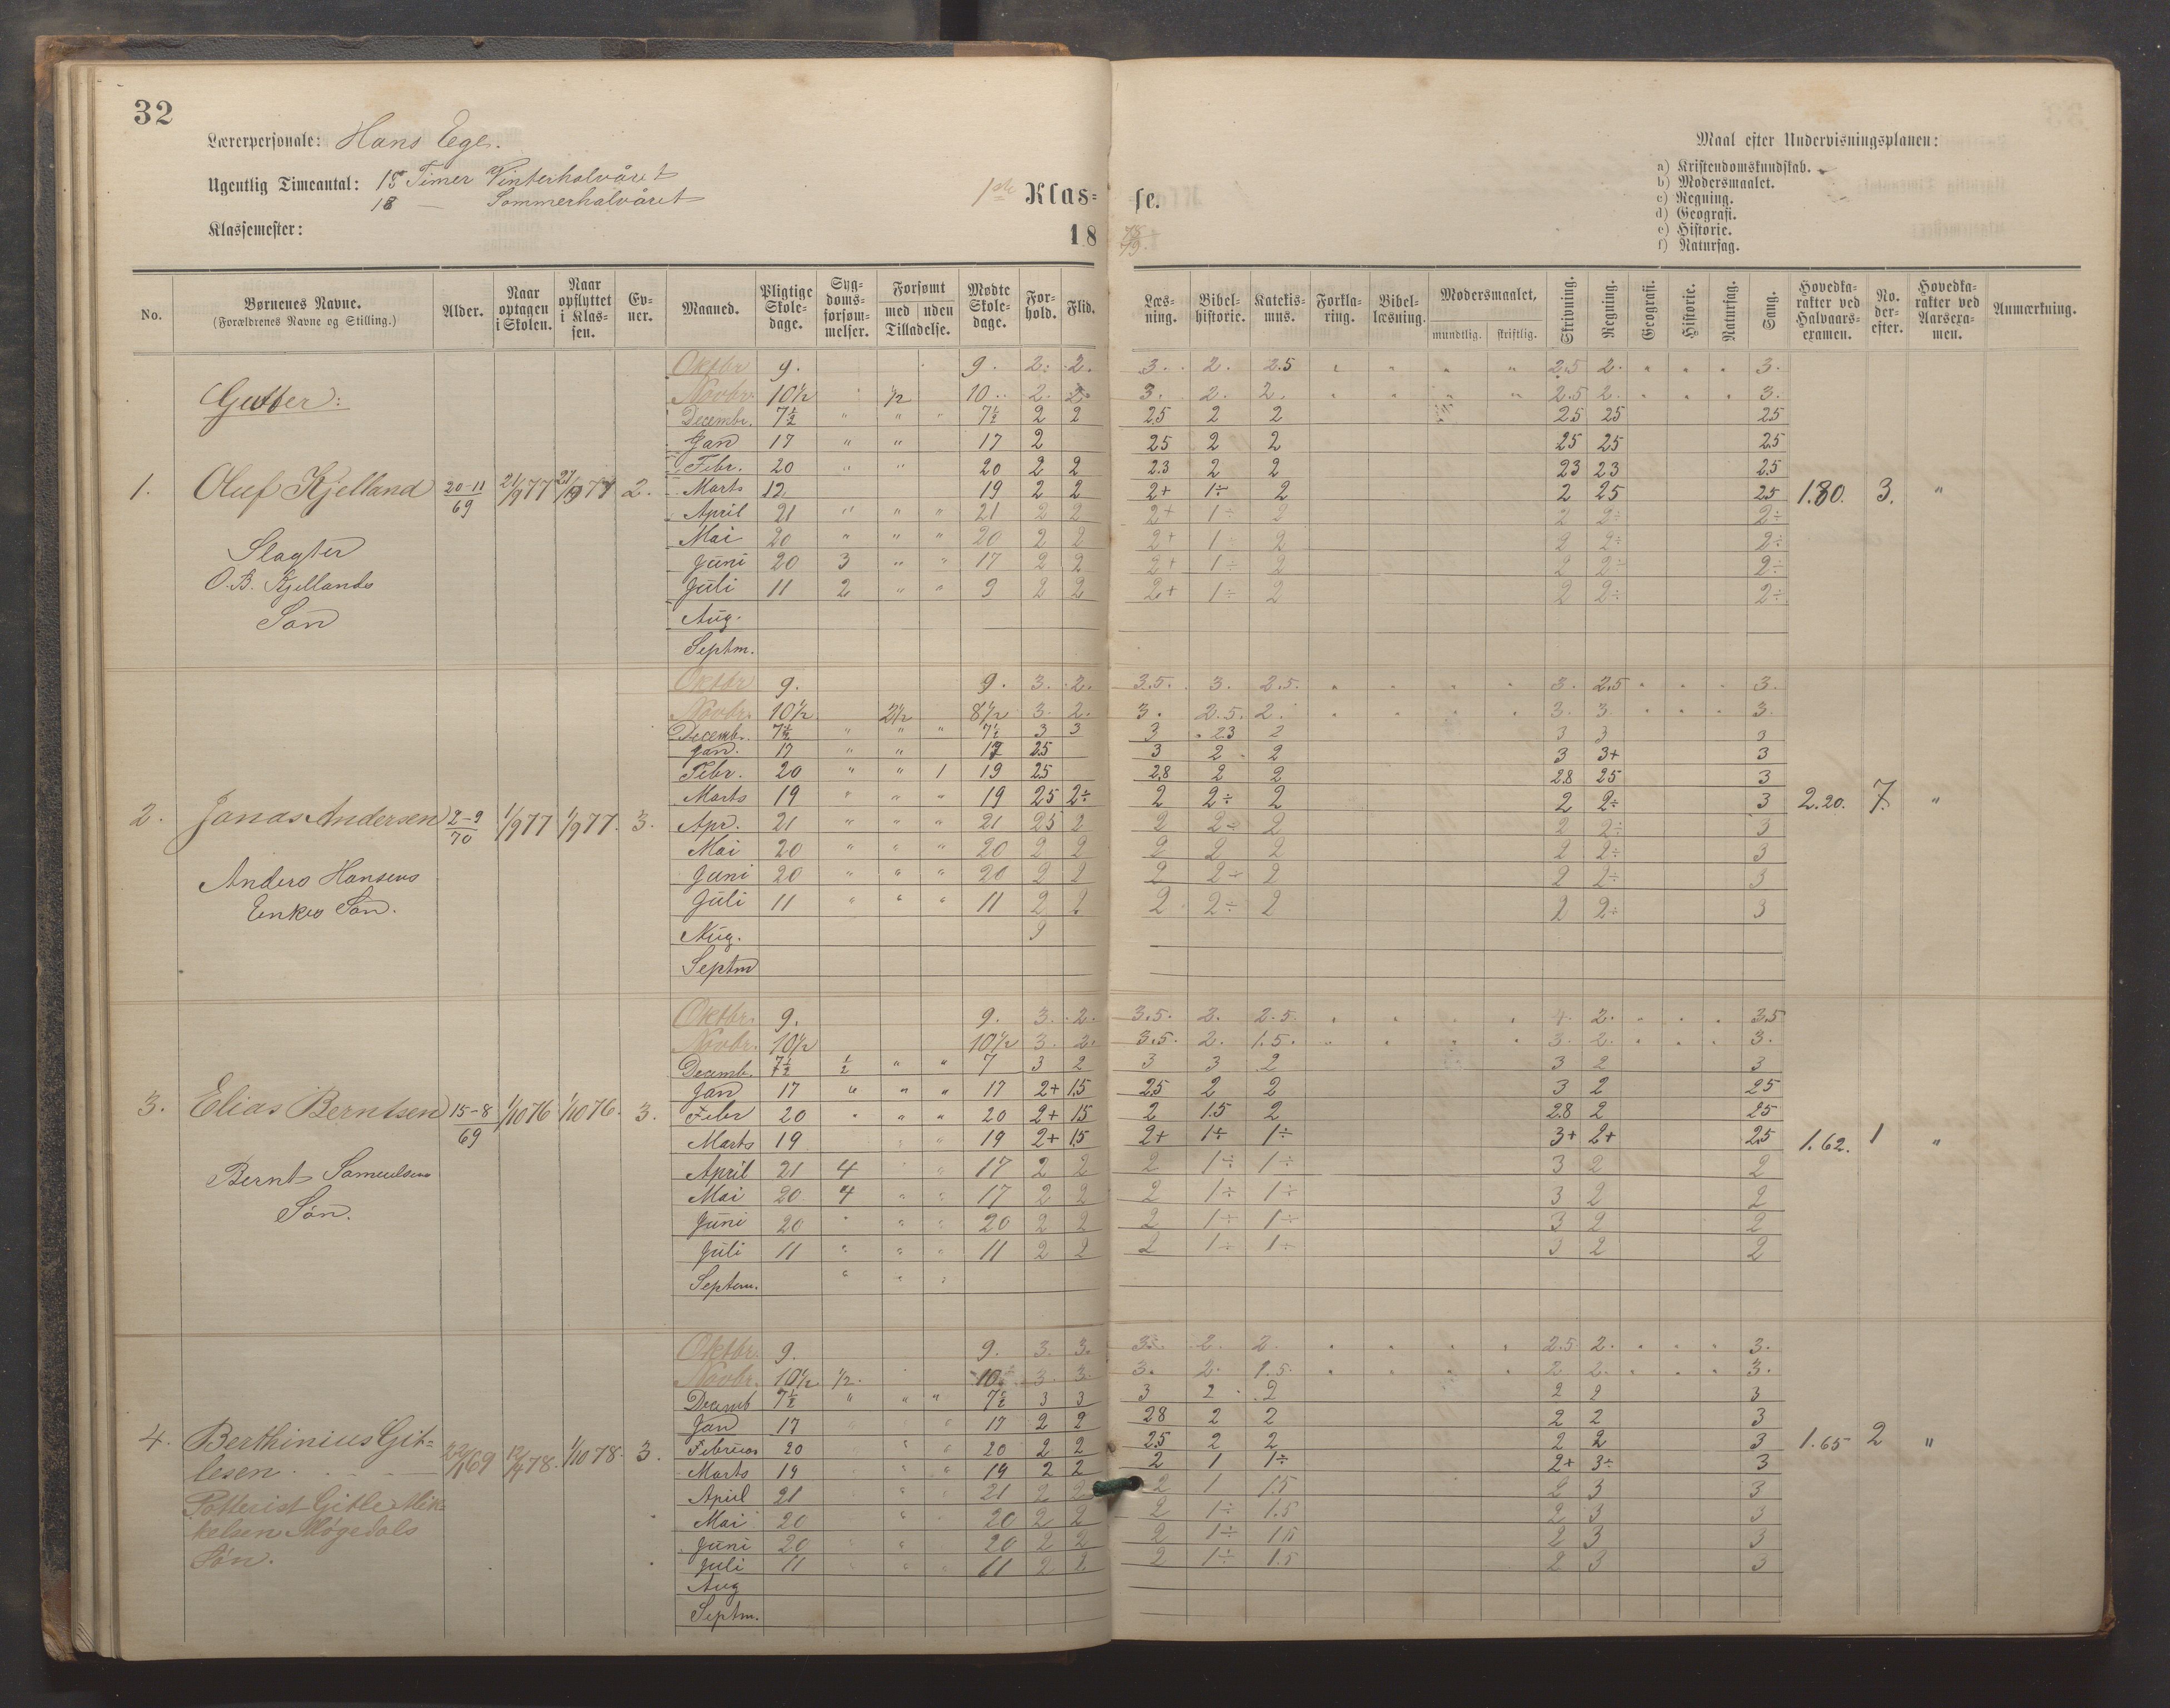 32
Lærerpersonale: Hans Ege.
Ugentlig Timeantal: 15 Timer Vinterhalvåret
18 — Sommerhalvåret
Klassemester:
1ste Klas= se.
18 78/79.
Maal efter Undervisningsplanen:
a) Kristendomskundskab.
b) Modersmaalet.
c) Regning.
d) Geografi.
e) Historie.
f) Naturfag.
No. | Børnenes Navne. (Forældrenes Navne og Stilling.) | Alder. | Naar optagen i Skolen. | Naar opflyttet i Klassen. | Evner. | Maaned. | Pligtige Skoledage. | Sygdomsforsømmelser. | Forsømt med uden Tilladelse. | Mødte Skoledage. | Forhold. | Flid. | Læsning. | Bibelhistorie. | Katekismus. | Forklaring. | Bibellæsning. | Modersmaalet, mundtlig. skriftlig. | Skrivning. | Regning. | Geografi. | Historie. | Naturfag. | Sang. | Hovedkarakter ved Halvaarsexamen. | No. derefter. | Hovedkarakter ved Aarsexamen. | Anmærkning.
Gutter:
Oktbr 9. 9. 2. 2. 3. 2. 2.5 2.5 2. 3.
Novbr. 10½ ½ 10. 2. 2. 3. 2. 2. 2.5 2. 3.
Decembr. 7½ " " " 7½ 2 2 25 2 2 25 25 25
Jan 17 " " 17 2 25 2 2 25 25 25
Febr. 20 " " 20 2 2 2.3 2 2 23 23 25
1. Oluf Kjelland 20-11/69 21/9 77 2. Marts 12 19 2 2 2+ 1÷ 2 2 25 25 1.80. 3. "
April 21 " " " 21 2 2 2+ 1÷ 2 2 2÷ 2÷
Slagter
Mai 20 " " " 20 2 2 2+ 1÷ 2 2 2÷ 2÷
O.B. Kjellands
Juni 20 3 " " 17 2 2 2+ 1÷ 2 2 2÷ 2÷
Juli 11 2 " " 9 2 2 2+ 1÷ 2 2 2÷ 2÷
Søn
Aug.
Septm.
Oktbr 9. 9. 3. 2. 3.5. 3. 2.5. 3. 2.5 3.
Novbr. 10½ 2½ 8½ 3. 2. 3. 2.5. 2. 3. 3. 3.
Decembr. 7½ " " " 7½ 3 3 3 23 2 3 3 3
Jan. 17 " " 17 25 3 2 2 3 3+ 3
Febr. 20 " " 1 19 25 28 2 2 28 25 3
Marts 19 " " " 19 25 2÷ 2 2÷ 2 2 2÷ 3 2.20. 7. "
2. Jonas Andersen 2-9/70 1/9 77 1/9 77. 3. Apr. 21 " " " 21 25 2 2 2÷ 2 2 2÷ 3
Mai 20 " " " 20 2 2 2 2 2 2 2÷ 3
Anders Hansens
Juni 20 " " " 20 2 2 2 2÷ 2 2 2÷ 3
Enkes Søn.
Juli 11 " " " 11 2 2 2 2÷ 2 2 2÷ 3
Aug. 9
Septm
Oktbr. 9. 9. 3. 2. 3.5. 2. 2.5. 4. 2. 3.5
Novbr. 10½ 10½ 3. 2. 3.5. 2. 1.5. 3. 2. 3.
Decemb. 7½ ½ " " 7 3 2 3 3 2 3 2 3
Jan 17 " " " 17 2+ 1.5 25 2 2 3 2 25
3. Elias Berntsen 15-8/69 1/10 76 1/10 76. 3. Febr 20 " " " 20 2+ 15 2 1.5 2 28 2 25
Marts 19 " " 19 2+ 1.5 2+ 1÷ 1÷ 3+ 2+ 25 1.62. 1 "
Bernt Samuelsens
April 21 4 " " 17 2 2 2 1÷ 1÷ 3 2 2
Mai 20 4 " " 17 2 2 2 1÷ 1÷ 3 2 2
Søn.
Juni 20 " " " 20 2 2 2 1÷ 1÷ 3 2 2
Juli 11 " " " 11 2 2 2 1÷ 1÷ 3 2 2
Septem. " " "
Oktbr. 9. 9. 3. 3. 3. 2. 2. 2.5 2. 3.
Novbr. 10½ ½. 10. 3. 3. 3. 2. 1.5. 2 2. 3.
Decemb 7½ " " " 7½ 3 3 3 2 2 2 2 3
Jan 17 17 2 2 28 2 2 2 2 3
4. Berthinius Git= 1/10 78. 3. Februar 20 " " 20 2 2 25 2 2 2 2 3 1.65 2 "
lesen.
Marts 19 " " 19 2 2 2 1 1÷ 2+ 3÷ 3
Potterist Gitle Mik=
April 21 " " 21 2 2 2 1 1.5 2 3 3
kelsen Møgedals
Mai 20 " 20 2 2 2 1÷ 1.5 2 3 3
Søn.
Juni 20 " 20 2 2 2 1÷ 1.5 2 3 3
Juli 11 " " 11 2 2 2 1÷ 1.5 2 3 3
Aug
Septm.